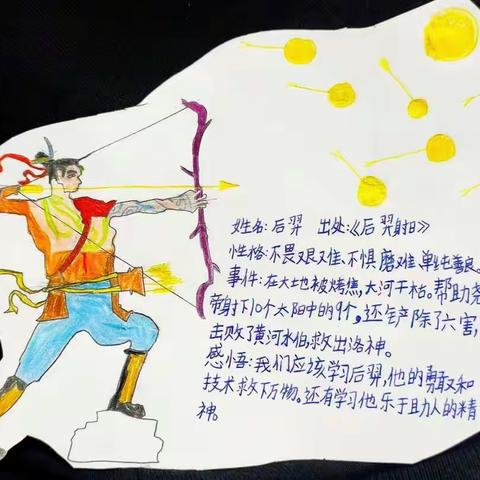 姓名:后羿 出处:《后羿射日》
性格:不畏艰难、不惧磨难、单纯善良。
事件:在大地被烤焦,大河干枯。帮助尧
帝射下10个太阳中的9个,还铲除了六害,
击败了黄河水伯,救出洛神。
感悟:我们应该学习后羿,他的勇敢和
技术救下万物。还有学习他乐于助人的精
神。